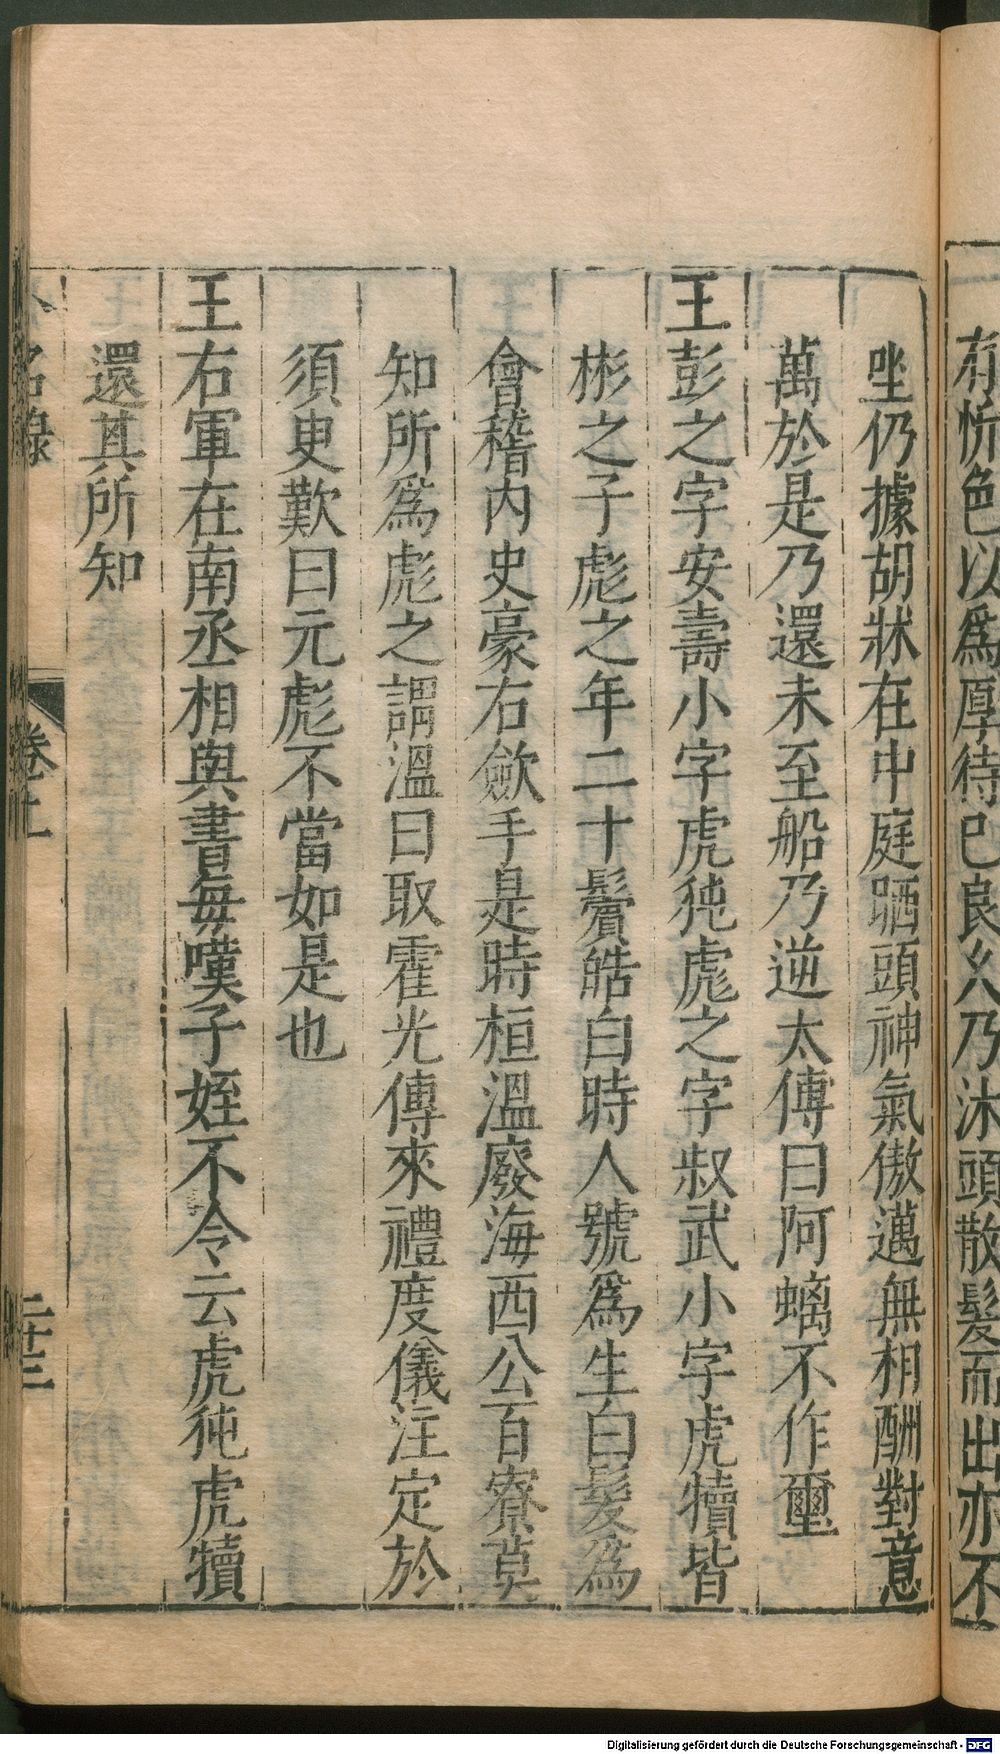 有忻色以爲厚待已良久乃沐頭散髮而出亦不
坐仍據胡牀在中庭晒頭神氣傲邁無相酬對意
萬於是乃還未至船乃逆太傅曰阿螭不作爾
王彭之字安壽小字虎㹠虎之字叔武小字虎犢皆
彬之子彪之年二十鬢皓白時人號爲生白髮爲
會稽内史豪右歛手是時桓溫廢海西公百寮莫
知所爲彪之謂溫曰取霍光傳來禮度儀注定於
須臾歎曰元彪不當如是也
王右軍在南丞相與書每嘆子姪不令云虎㹠虎犢
還其所知
小名錄 卷上 二十三
Digitalisierung gefördert durch die Deutsche Forschungsgemeinschaft - DFG